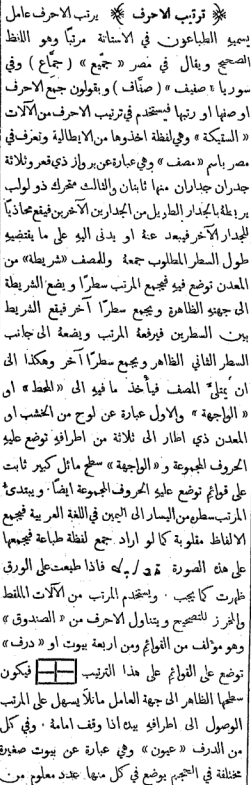 ❋ ترتيب الاحرف ❋ يرتب الاحرف عامل
يسميهِ الطباعون في الاستانة مرتبًا وهو اللفظ
الصحيح ويقال في مصر «جمّيع» (جمّاع) وفي
سوريا «صفيف» (صفّاف) ويقولون جمع الاحرف
او صفها او رتبها فيستخدم في ترتيب الاحرف من الآلات
«السقبكة» وهي لفظة اخذوها من الايطالية وتعرف في
مصر باسم «مصف» وهي عبارة عن برواز ذي قعر وثلاثة
جدران جداران منها ثابتان والثالث متحرك ذو لولب
يربطهُ بالجدار الطويل من الجدارين الآخرين فيقع محاذيًا
للجدار الآخر فيبعد عنهُ او يدنى اليهِ على ما يقتضيهِ
طول السطر المطلوب جمعهُ وللمصف «شريطة» من
المعدن توضع فيهِ فيجمع المرتب سطرًا ويضع الشريطة
الى جهتهِ الظاهرة ويجمع سطرًا آخر فيقع الشريط
بين السطرين فيرفعهُ المرتب ويضعهُ الى جانب
السطر الثاني الظاهر ويجمع سطرًا آخر وهكذا الى
ان يمتلئَ المصف فيأخذ ما فيهِ الى «المحط» او
«الواجهة» والاول عبارة عن لوح من الخشب او
المعدن ذي اطار الى ثلاثة من اطرافهِ توضع عليهِ
الحروف المجموعة و«الواجهة» سطح مائل كبير ثابت
على قوائم توضع عليهِ الحروف المجموعة ايضًا. ويبتدئُ
المرتب سطره من اليسار الى اليمين في اللغة العربية فيجمع
الالفاظ مقلوبة كما لو اراد جمع لفظة طباعة فيجمعها
على هذه الصورة فاذا طبعت على الورق
ظهرت كما يجب. ويستخدم المرتب من الآلات الملقط
والمخرز للتصحيح ويتناول الاحرف من «الصندوق»
وهو مؤلف من القوائم ومن اربعة بيوت او «درف»
توضع على القوائم على هذا الترتيب فيكون
سطحها الظاهر الى جهة العامل مائلًا يسهل على المرتب
الوصول الى اطرافهِ بيده اذا وقف امامهُ. وفي كل
من الدرف «عيون» وهي عبارة عن بيوت صغيرة
مختلفة في الحجم يوضع في كل منها عدد معلوم من